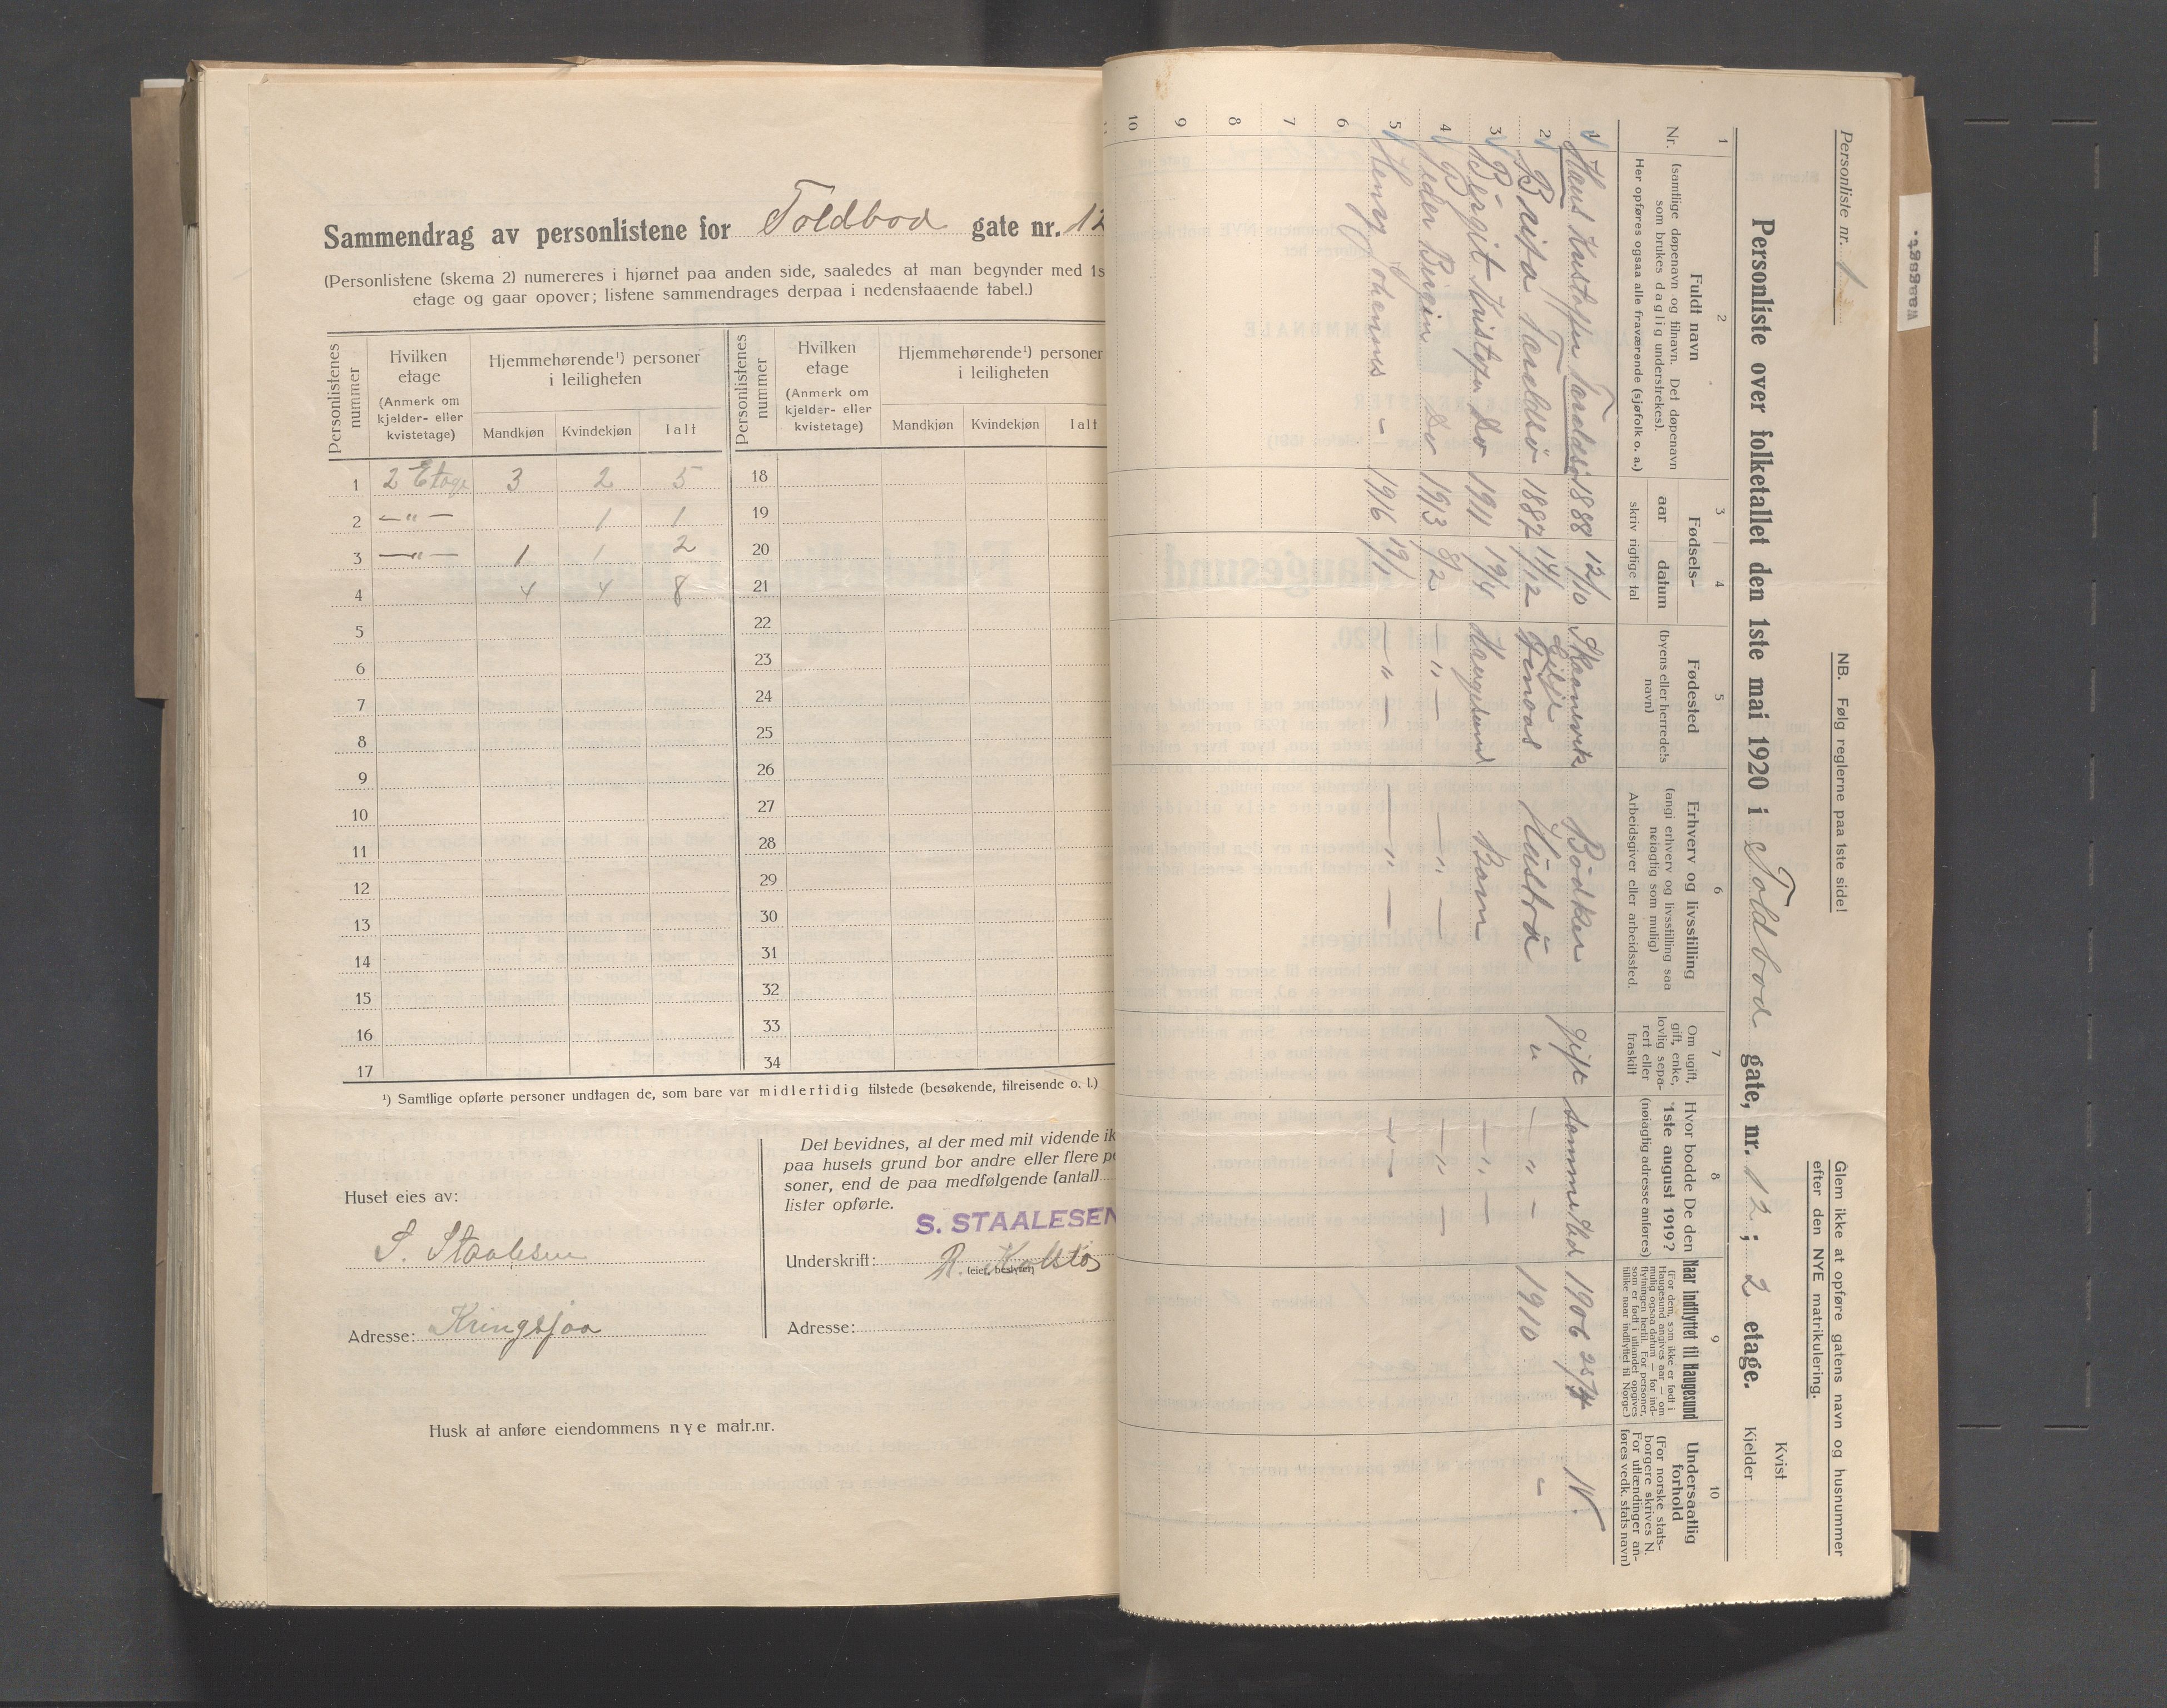 Sammendrag av personlistene for Toldbod gate nr. 12
(Personlistene (skema 2) numereres i hjørnet paa anden side, saaledes at man begynder med 1s
etage og gaar opover; listene sammendrages derpaa i nedenstaaende tabel.)
Personlistenes nummer
Hvilken etage
(Anmerk om kjelder- eller kvistetage)
Hjemmehørende¹) personer i leiligheten
Mandkjøn Kvindekjøn Ialt
Personlistenes nummer
Hvilken etage
(Anmerk om kjelder- eller kvistetage)
Hjemmehørende¹) personer i leiligheten
Mandkjøn Kvindekjøn Ialt
1 2 Etage 3 2 5
2 —"— 1 1
3 —"— 1 1 2
4 4 4 8
5
6
7
8
9
10
11
12
13
14
15
16
17
18
19
20
21
22
23
24
25
26
27
28
29
30
31
32
33
34
¹) Samtlige opførte personer undtagen de, som bare var midlertidig tilstede (besøkende, tilreisende o. l.)
Huset eies av:
S. Staalesen
Adresse: Kringsjaa
Det bevidnes, at der med mit vidende ik
paa husets grund bor andre eller flere pe
soner, end de paa medfølgende (antal)
lister opførte.
S. STAALESEN
Underskrift: R. Kolstø
(eier, bestyrer)
Adresse:
Husk at anføre eiendommens nye matr.nr.
Personliste nr. 1
NB. Følg reglerne paa 1ste side!
Glem ikke at opføre gatens navn og husnummer
efter den NYE matrikulering.
Personliste over folketallet den 1ste mai 1920 i Toldbod gate, nr. 12; 2 etage.
Kvist
Kjelder
1 2 3 4 5 6 7 8 9 10
Nr.
Fuldt navn
(samtlige døpenavn og tilnavn. Det døpenavn
som brukes daglig understrekes).
Her opføres ogsaa alle fraværende (sjøfolk o. a.)
Fødsels-
aar datum
skriv rigtige tal
Fødested
(byens eller herredets
navn)
Erhverv og livsstilling
(angi erhverv og livsstilling saa
nøiagtig som mulig)
Arbeidsgiver eller arbeidssted.
Om ugift,
gift, enke,
lovlig sepa-
rert eller
fraskilt
Hvor bodde De den
1ste august 1919?
(nøiagtig adresse anføres)
Naar indflyttet til Haugesund
(For dem, som ikke er født i
Haugesund angives aar — om
mulig ogsaa datum — for ind-
flytningen hertil. For personer,
som er født i utlandet opgives
tillike naar indflyttet til Norge.)
Undersaatlig
forhold
(For norske stats-
borgere skrives N.
For utlændinger an-
føres vedk. stats navn)
1 Hans Kristoffer 1888 12/10 Skaanevik Bødker gift sammested 1906 N.
2 Brita 1887 14/12 Hustru " —"— 1910 -
3 Bergit Do 1911 19/4 Haugesund Barn —"—
4 Peder Do 1913 8/2 —"— —"— —"—
5 Henry Johannes - 1916 19/1 —"— —"— —"—
6
7
8
9
10